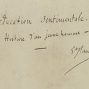 Education sentimentale.
Histoire d'un jeune homme